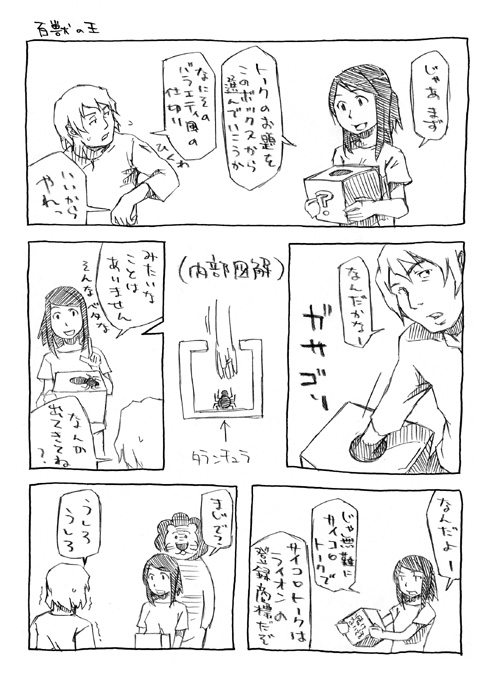 百獣の王
じゃあまず
トークのお題を
このボックスから
選んでいこうか
なにその
バラエティ風の
仕切り
ひくわ
いいから
やれっ
なんだかなー
ガサゴソ
(内部図解)
タランチュラ
みたいな
ことは
ありません
そんなベタな
なんか
出てきてね
?
なんだよー
じゃ無難に
サイコロ
トークで
サイコロトークは
ライオンの
登録商標だぞ
まじで?
うしろ
うしろ